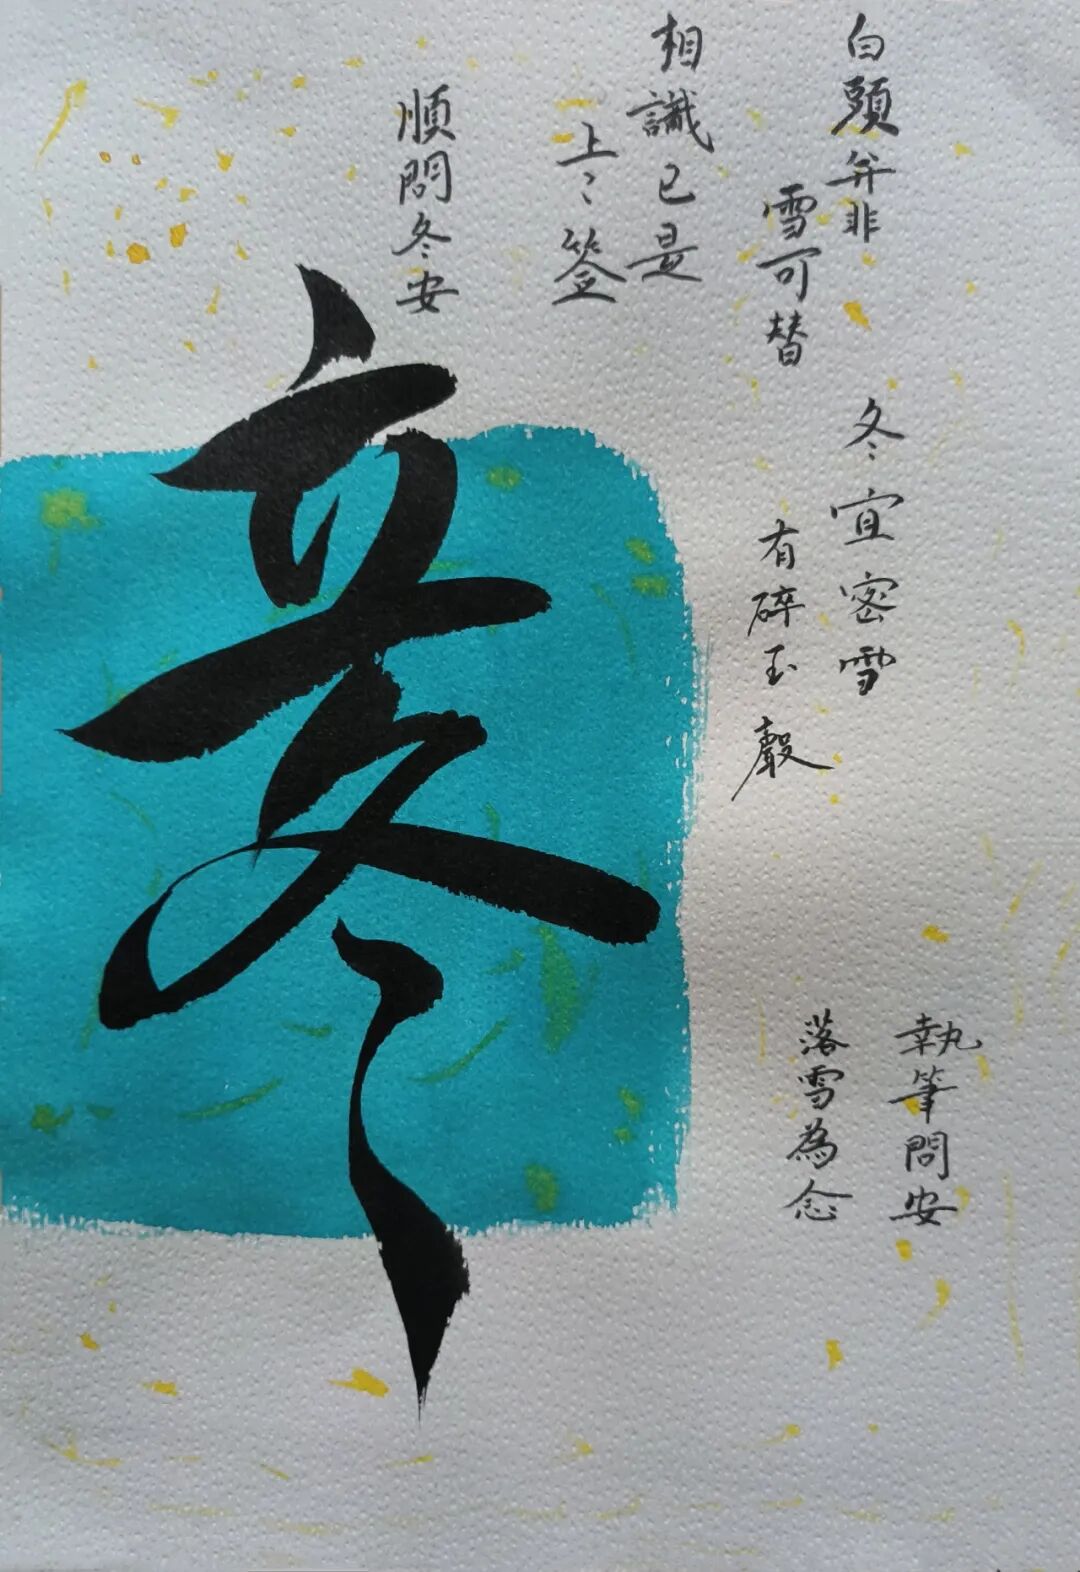 執筆問安
落雪為念
白頭并非
雪可替
冬宜密雪
有碎玉聲
相識已是
上〻簽
順問冬安
寒